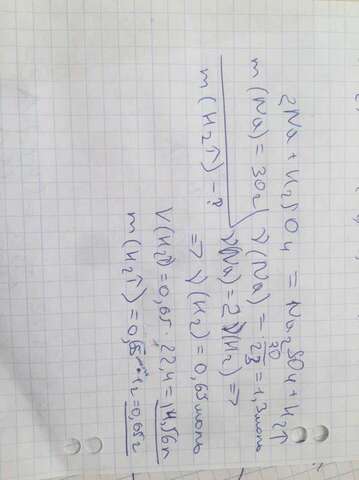 2Na + H₂SO₄ = Na₂SO₄ + H₂↑
m(Na) = 30г
ν(Na) = 30/23 = 1,3моль
ν(Na) = 2ν(H₂) =>
m(H₂↑) - ?
=> ν(H₂) = 0,65моль
V(H₂) = 0,65 · 22,4 = 14,56л
m(H₂↑) = 0,65
2 = 0,65г